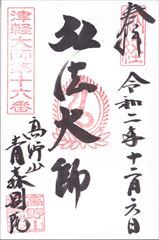 奉拝
令和二年十二月六日
弘法大師
高野山
青森別院
津軽大師第十六番